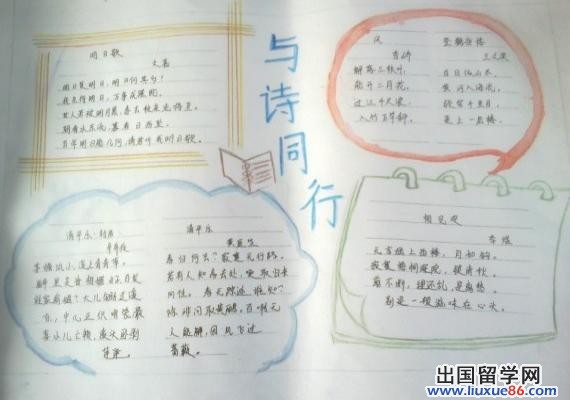 与诗同行
明日歌
文嘉
明日复明日,明日何其多!
我生待明日,万事成蹉跎。
世人若被明日累,春去秋来老将至。
朝看水东流,暮看日西坠。
百年明日能几何,请君听我明日歌。
风
李峤
解落三秋叶,
能开二月花。
过江千尺浪,
入竹万竿斜。
登鹳雀楼
王之涣
白日依山尽,
黄河入海流。
欲穷千里目,
更上一层楼。
清平乐·村居
辛弃疾
茅檐低小,溪上青青草。
醉里吴音相媚好,白发
谁家翁媪?大儿锄豆溪
东,中儿正织鸡笼。最
喜小儿亡赖,溪头卧剥
莲蓬。
清平乐
黄庭坚
春归何处?寂寞无行路。
若有人知春去处,唤取归来
同住。春无踪迹谁知?
除非问取黄鹂,百啭无
人能解,因风飞过
蔷薇。
相见欢
李煜
无言独上西楼,月如钩。
寂寞梧桐深院,锁清秋。
剪不断,理还乱,是离愁。
别是一般滋味在心头。
出国留学网
www.liuxue86.com